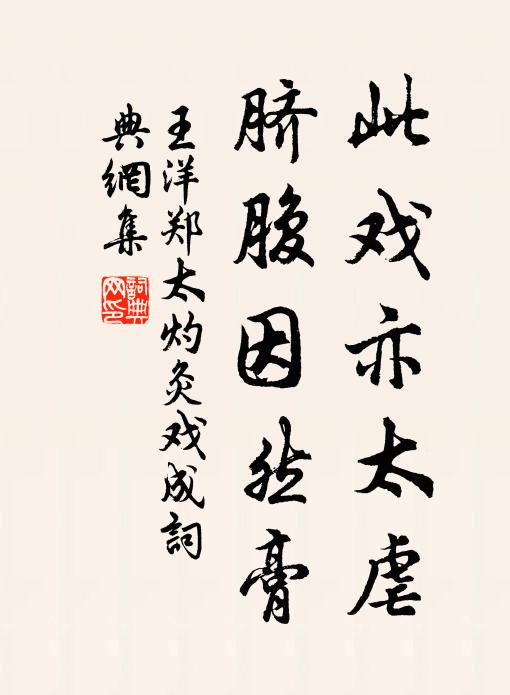 此戏亦太虐
脐腹因然膏
王洋郑太灼灸戏成詞
典網集
詞典
网印